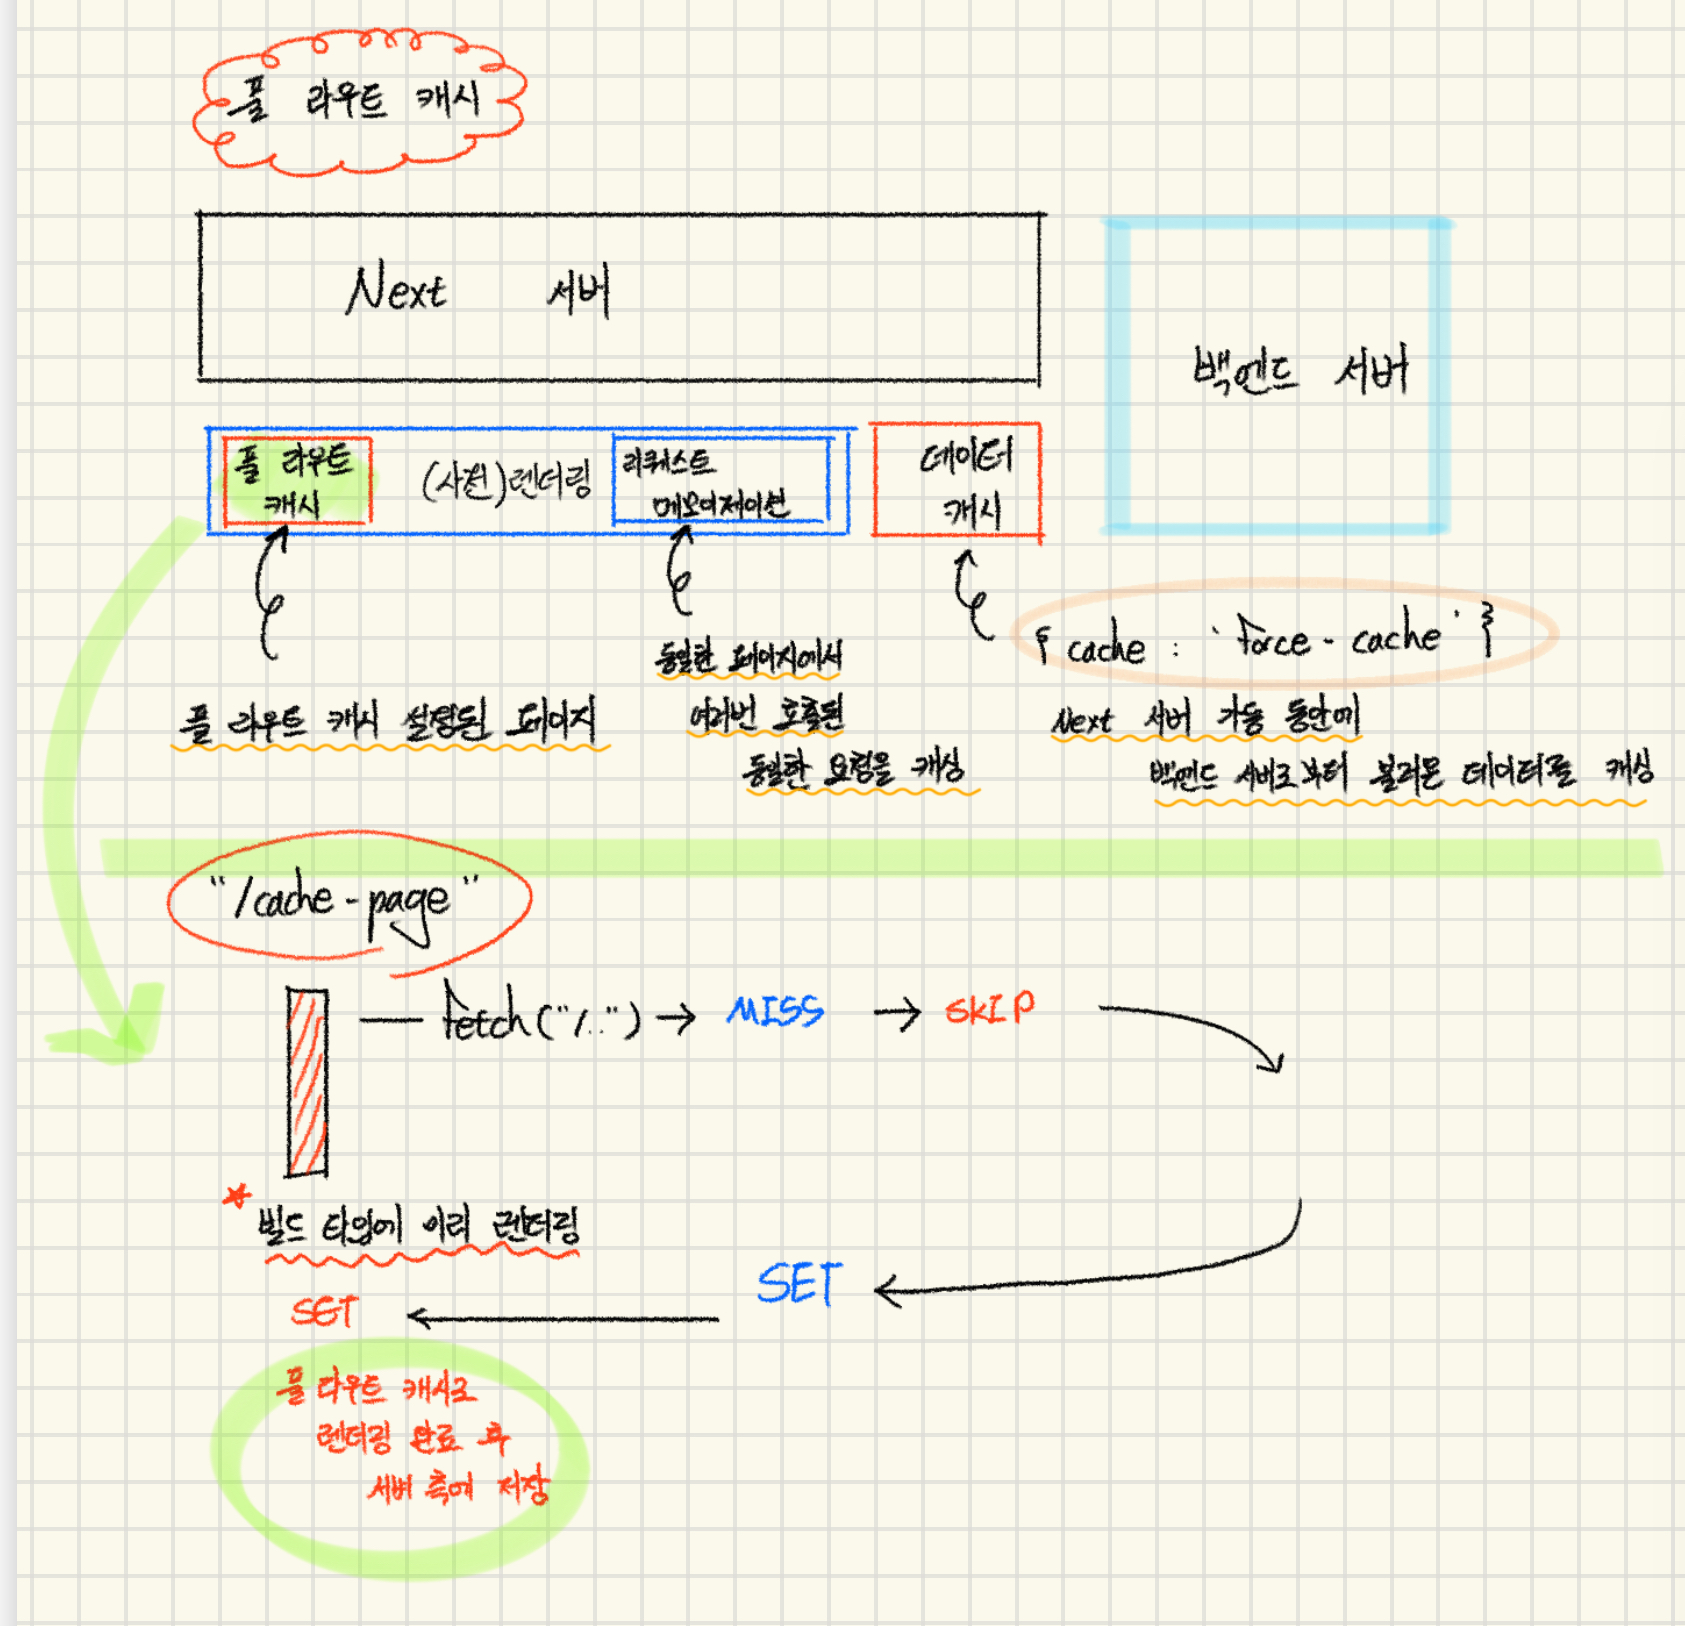 풀 라우트 캐시
Next 서버
백엔드 서버
풀 라우트
캐시
(사전)렌더링
리퀘스트
메모이제이션
데이터
캐시
{ cache : 'force-cache' }
풀 라우트 캐시 설정된 페이지
동일한 페이지에서
여러번 호출된
동일한 요청을 캐싱
Next 서버 가동 동안에
백엔드 서버로부터 불러온 데이터를 캐싱
"/cache-page"
fetch("/..") → MISS → SKIP
* 빌드 타임에 미리 렌더링
SET
SET
풀 라우트 캐시로
렌더링 완료 후
서버 측에 저장